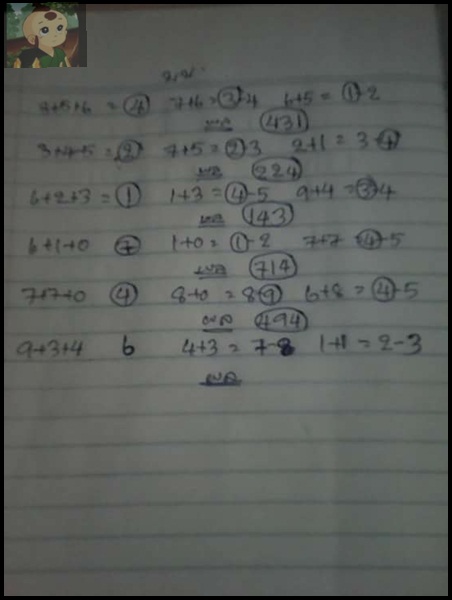 3+5+6 = 4 7+6 = 3-4 6+5 = 1-2
ผล 431
3+4+5 = 2 7+5 = 2-3 2+1 = 3-4
ผล 224
6+2+3 = 1 1+3 = 4-5 9+4 = 3-4
ผล 143
6+1+0 7 1+0 = 1-2 7+7 4-5
ผล 714
7+7+0 4 8+0 = 8-9 6+8 = 4-5
ผล 494
9+3+4 6 4+3 = 7-8 1+1 = 2-3
ผล